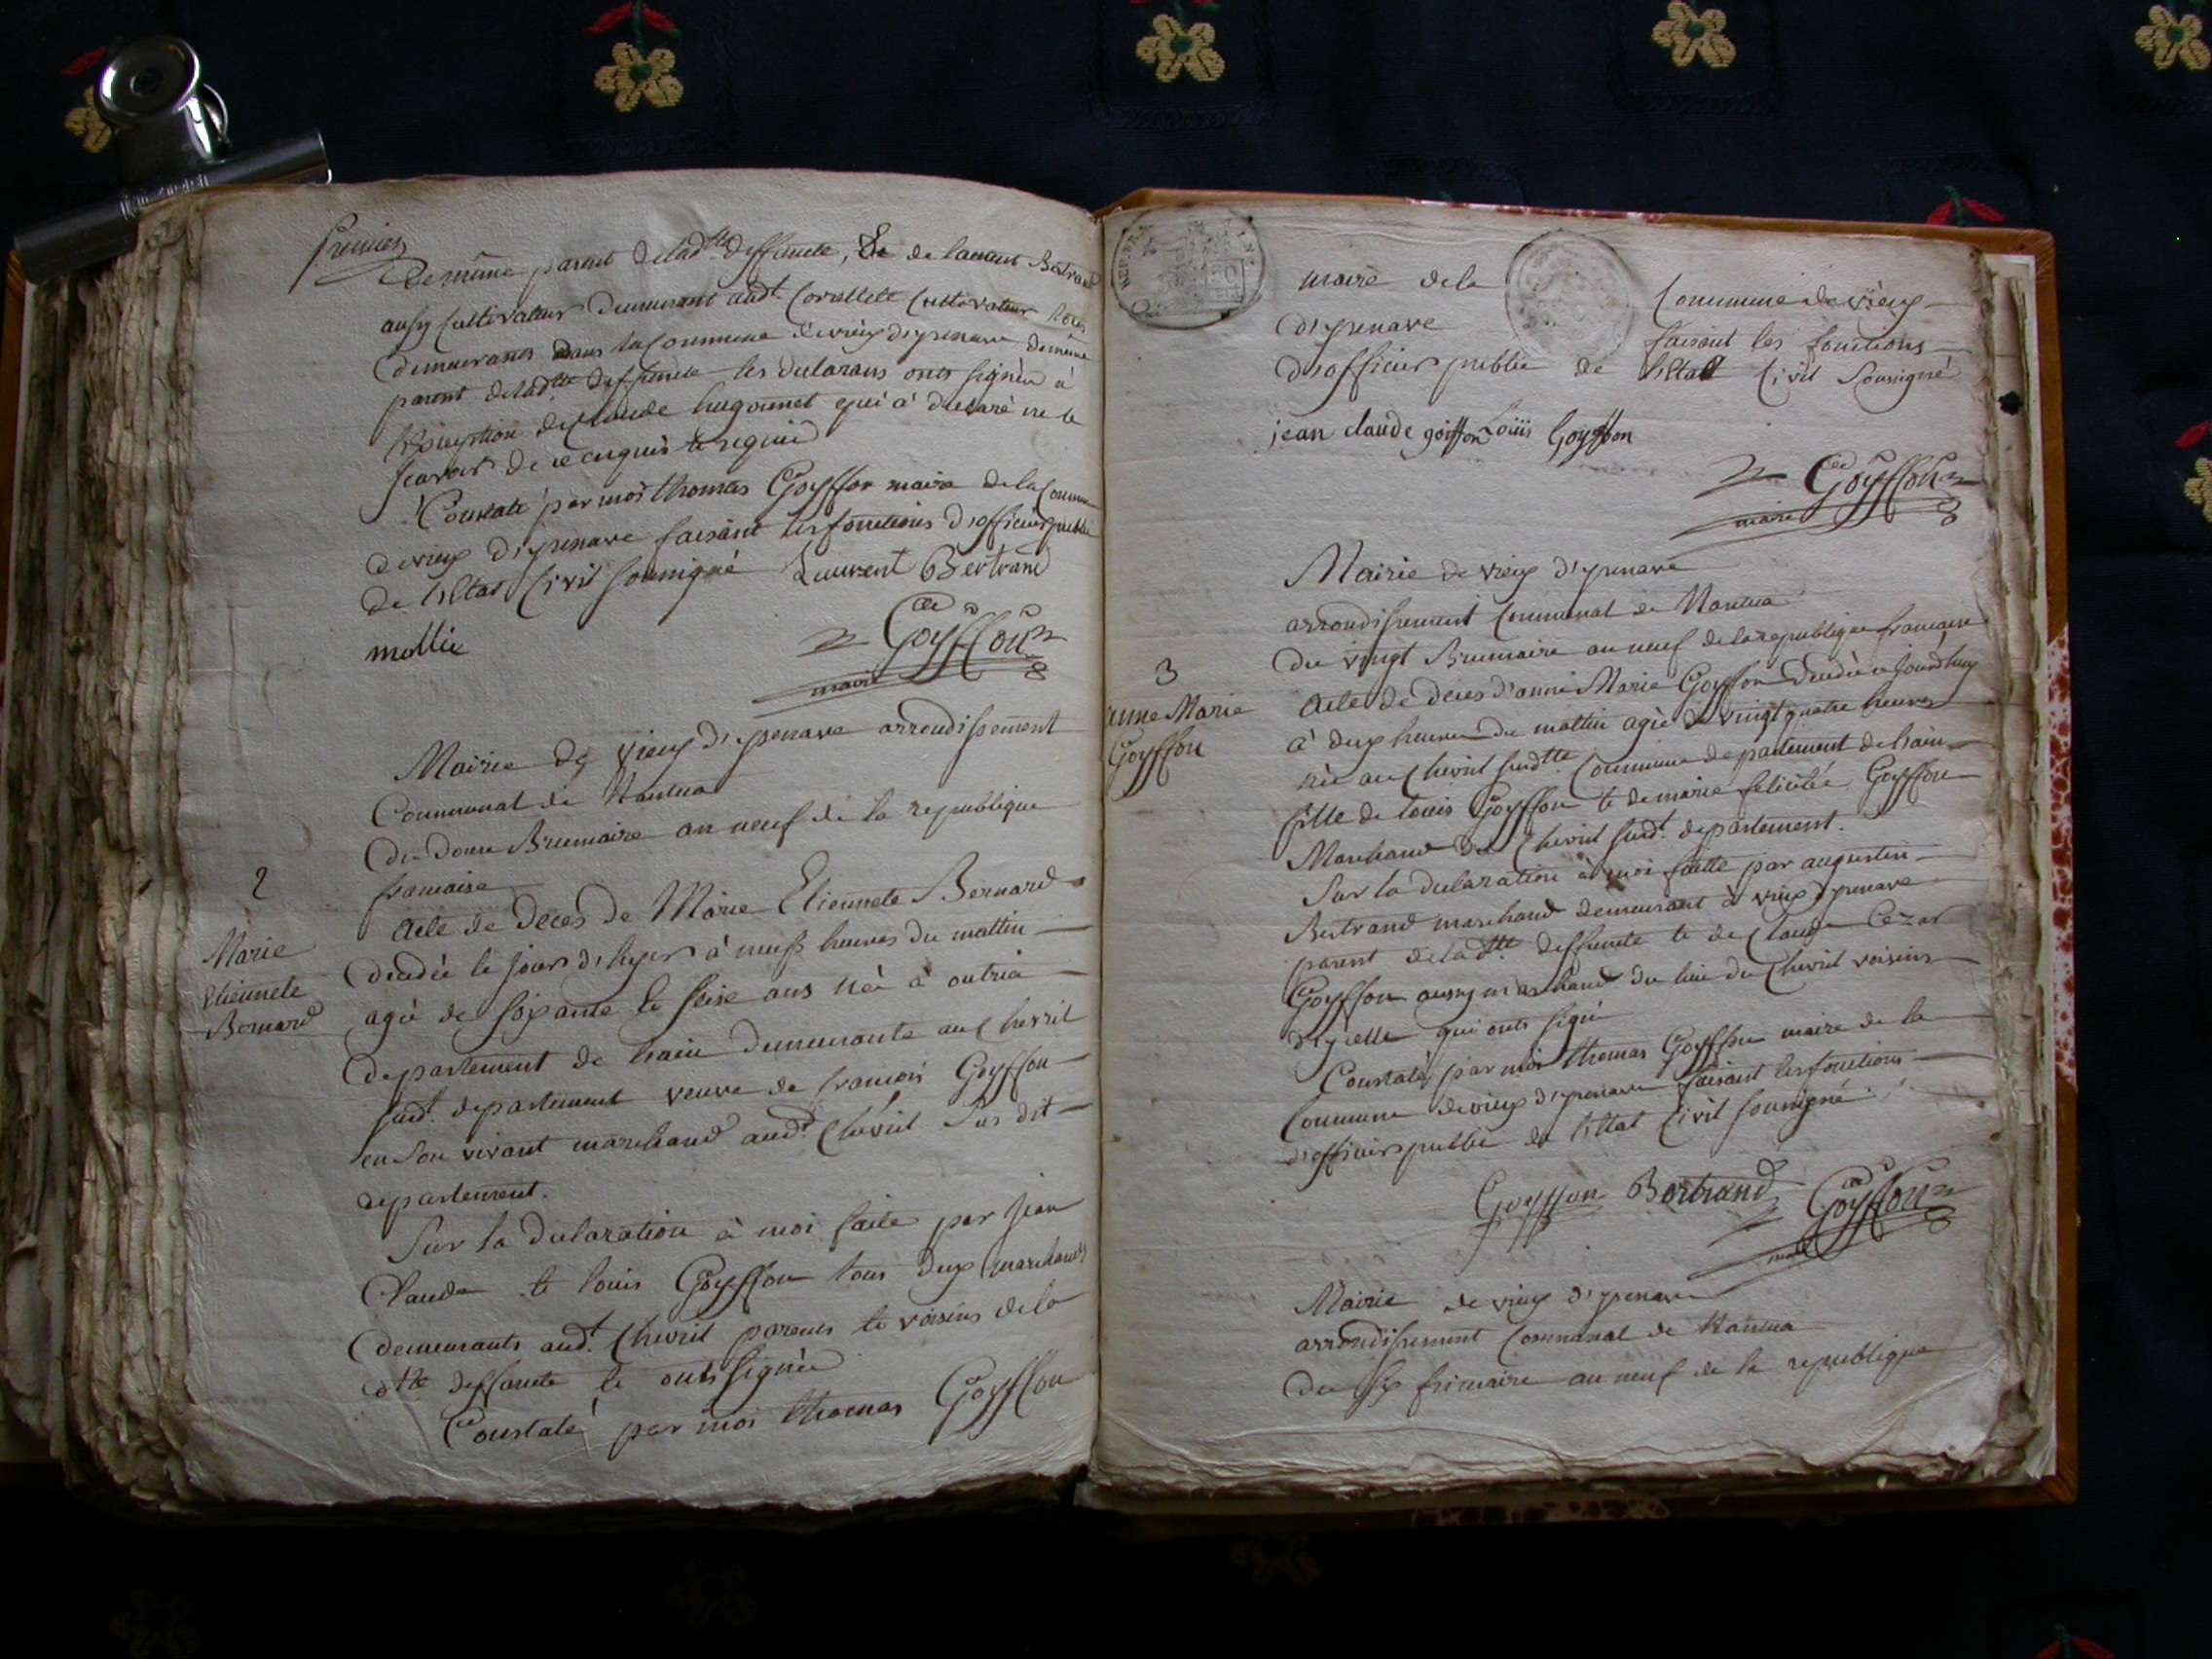 premier
De même parent de lad.te deffuncte, Et de laurant Bertrand
aussy Cultivateur Demeurant aud.t Corcellete Cultivateur tous
Demeurants Dans la Commune de vieux d'izenave de même
parent de lad.te deffuncte les declarans onts signèz à
l'exception de Claude hugonnet qui a declaré ne le
scavoir de ce enquis et requis
Constaté par moi thomas Goyffon maire de la Commune
de vieux d'izenave faisant les fonctions d'officier public
de l'Etat Civil soussigné Laurent Bertrand
mollie
Goyffon
maire
Mairie de vieux d'izenave arrondissement
Communal de Nantua
Du Douze Brumaire an neuf de la republique
francaise
2
Marie
Etiennete
Bernard
Acte de Deces de Marie Etiennete Bernard
decedée le jour d'hyer à neuf heures du mattin
agée de soixante et seise ans née à outria
departement de l'ain demeurante au Chevril
sud.t departement veuve de francois Goyffon
en son vivant marchand aud.t Chevril sus dit
departement.
Sur la declaration à moi faite par jean
Claude et louis Goyffon tous deux marchands
demeurants aud.t Chevril parents et voisins de la
d.te deffuncte et onts signèz
Constaté par moi thomas Goyffon
maire de la Commune de vieux
d'izenave faisant les fonctions
d'officier public de l'Etat Civil Soussigné
jean claude goiffon Louis Goyffon
Goyffon
maire
Mairie de vieux d'izenave
arrondissement Communal de Nantua
Du vingt Brumaire an neuf de la republique francaise
3
anne Marie
Goyffon
Acte de deces d'anne Marie Goyffon decedée ce jourd'huy
à deux heures du mattin agée de vingt quatre heures
née au Chevril susd.tte Commune departement de l'ain
fille de louis Goyffon et de marie felicitée Goyffon
Marchand du Chevril susd.t departement.
Sur la declaration à moi faitte par augustin
Bertrand marchand demeurant à vieux d'izenave
parent de lad.tte deffuncte et de Claude Cezar
Goyffon aussy marchand du lieu du Chevril voisins
d'icelle qui onts signé
Constaté par moi thomas Goyffon maire de la
Commune de vieux d'izenave faisant les fonctions
d'officier public de l'Etat Civil soussigné
Goyffon Bertrand Goyffon
maire
Mairie de vieux d'izenave
arrondissement Communal de Nantua
Du six frimaire an neuf de la republique